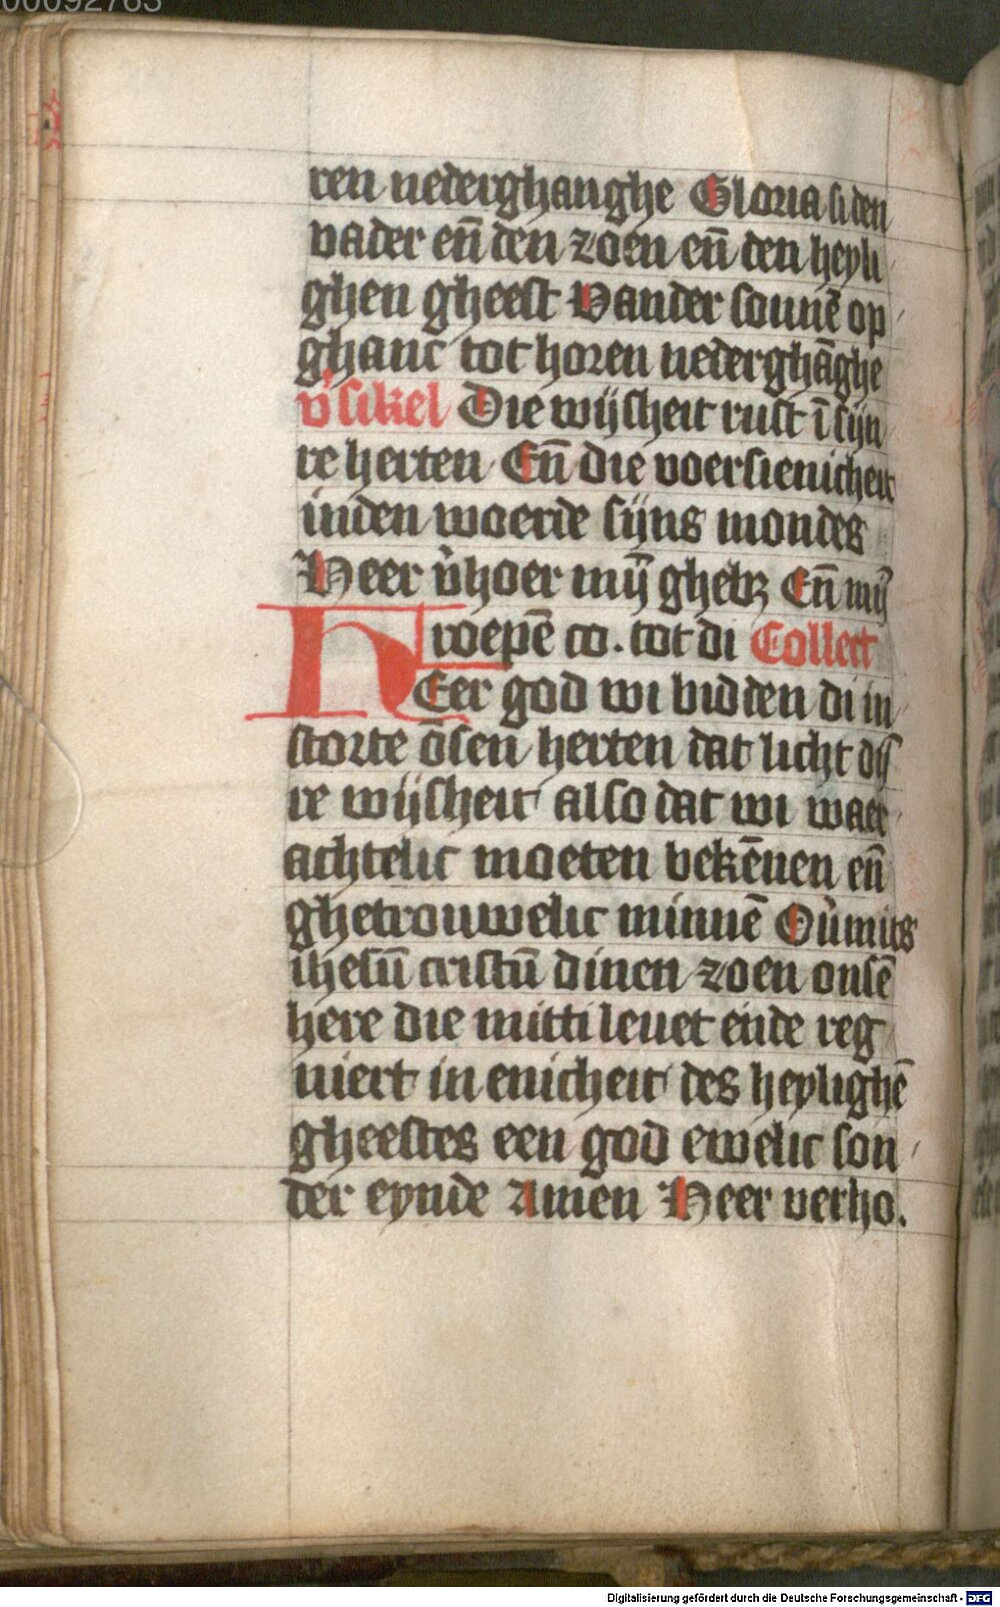 00092763
ren nederghanghe Gloria si den
vader en̄ den zoen en̄ den heyli
ghen gheest Vander sonnē op
ghanc tot horen nederghāghe
v̓sikel Die wijsheit rust ī sijn
re herten En̄ die voersienicheit
inden woerde sijns mondes
Heer v̓hoer mȳ ghebꝫ En̄ mȳ
roepē co. tot di Collect
HEer god wi bidden di in
storte ōsen herten dat licht dij
re wijsheit also dat wi waer
achtelic moeten bekēnen en̄
ghetrouwelic minnē Ov̓mits
ihesū cristū dinen zoen onsē
here die mitti leuet ende reg
niert in enicheit des heylighē
gheestes een god ewelic son
der eynde Amen Heer verho.
Digitalisierung gefördert durch die Deutsche Forschungsgemeinschaft - DFG